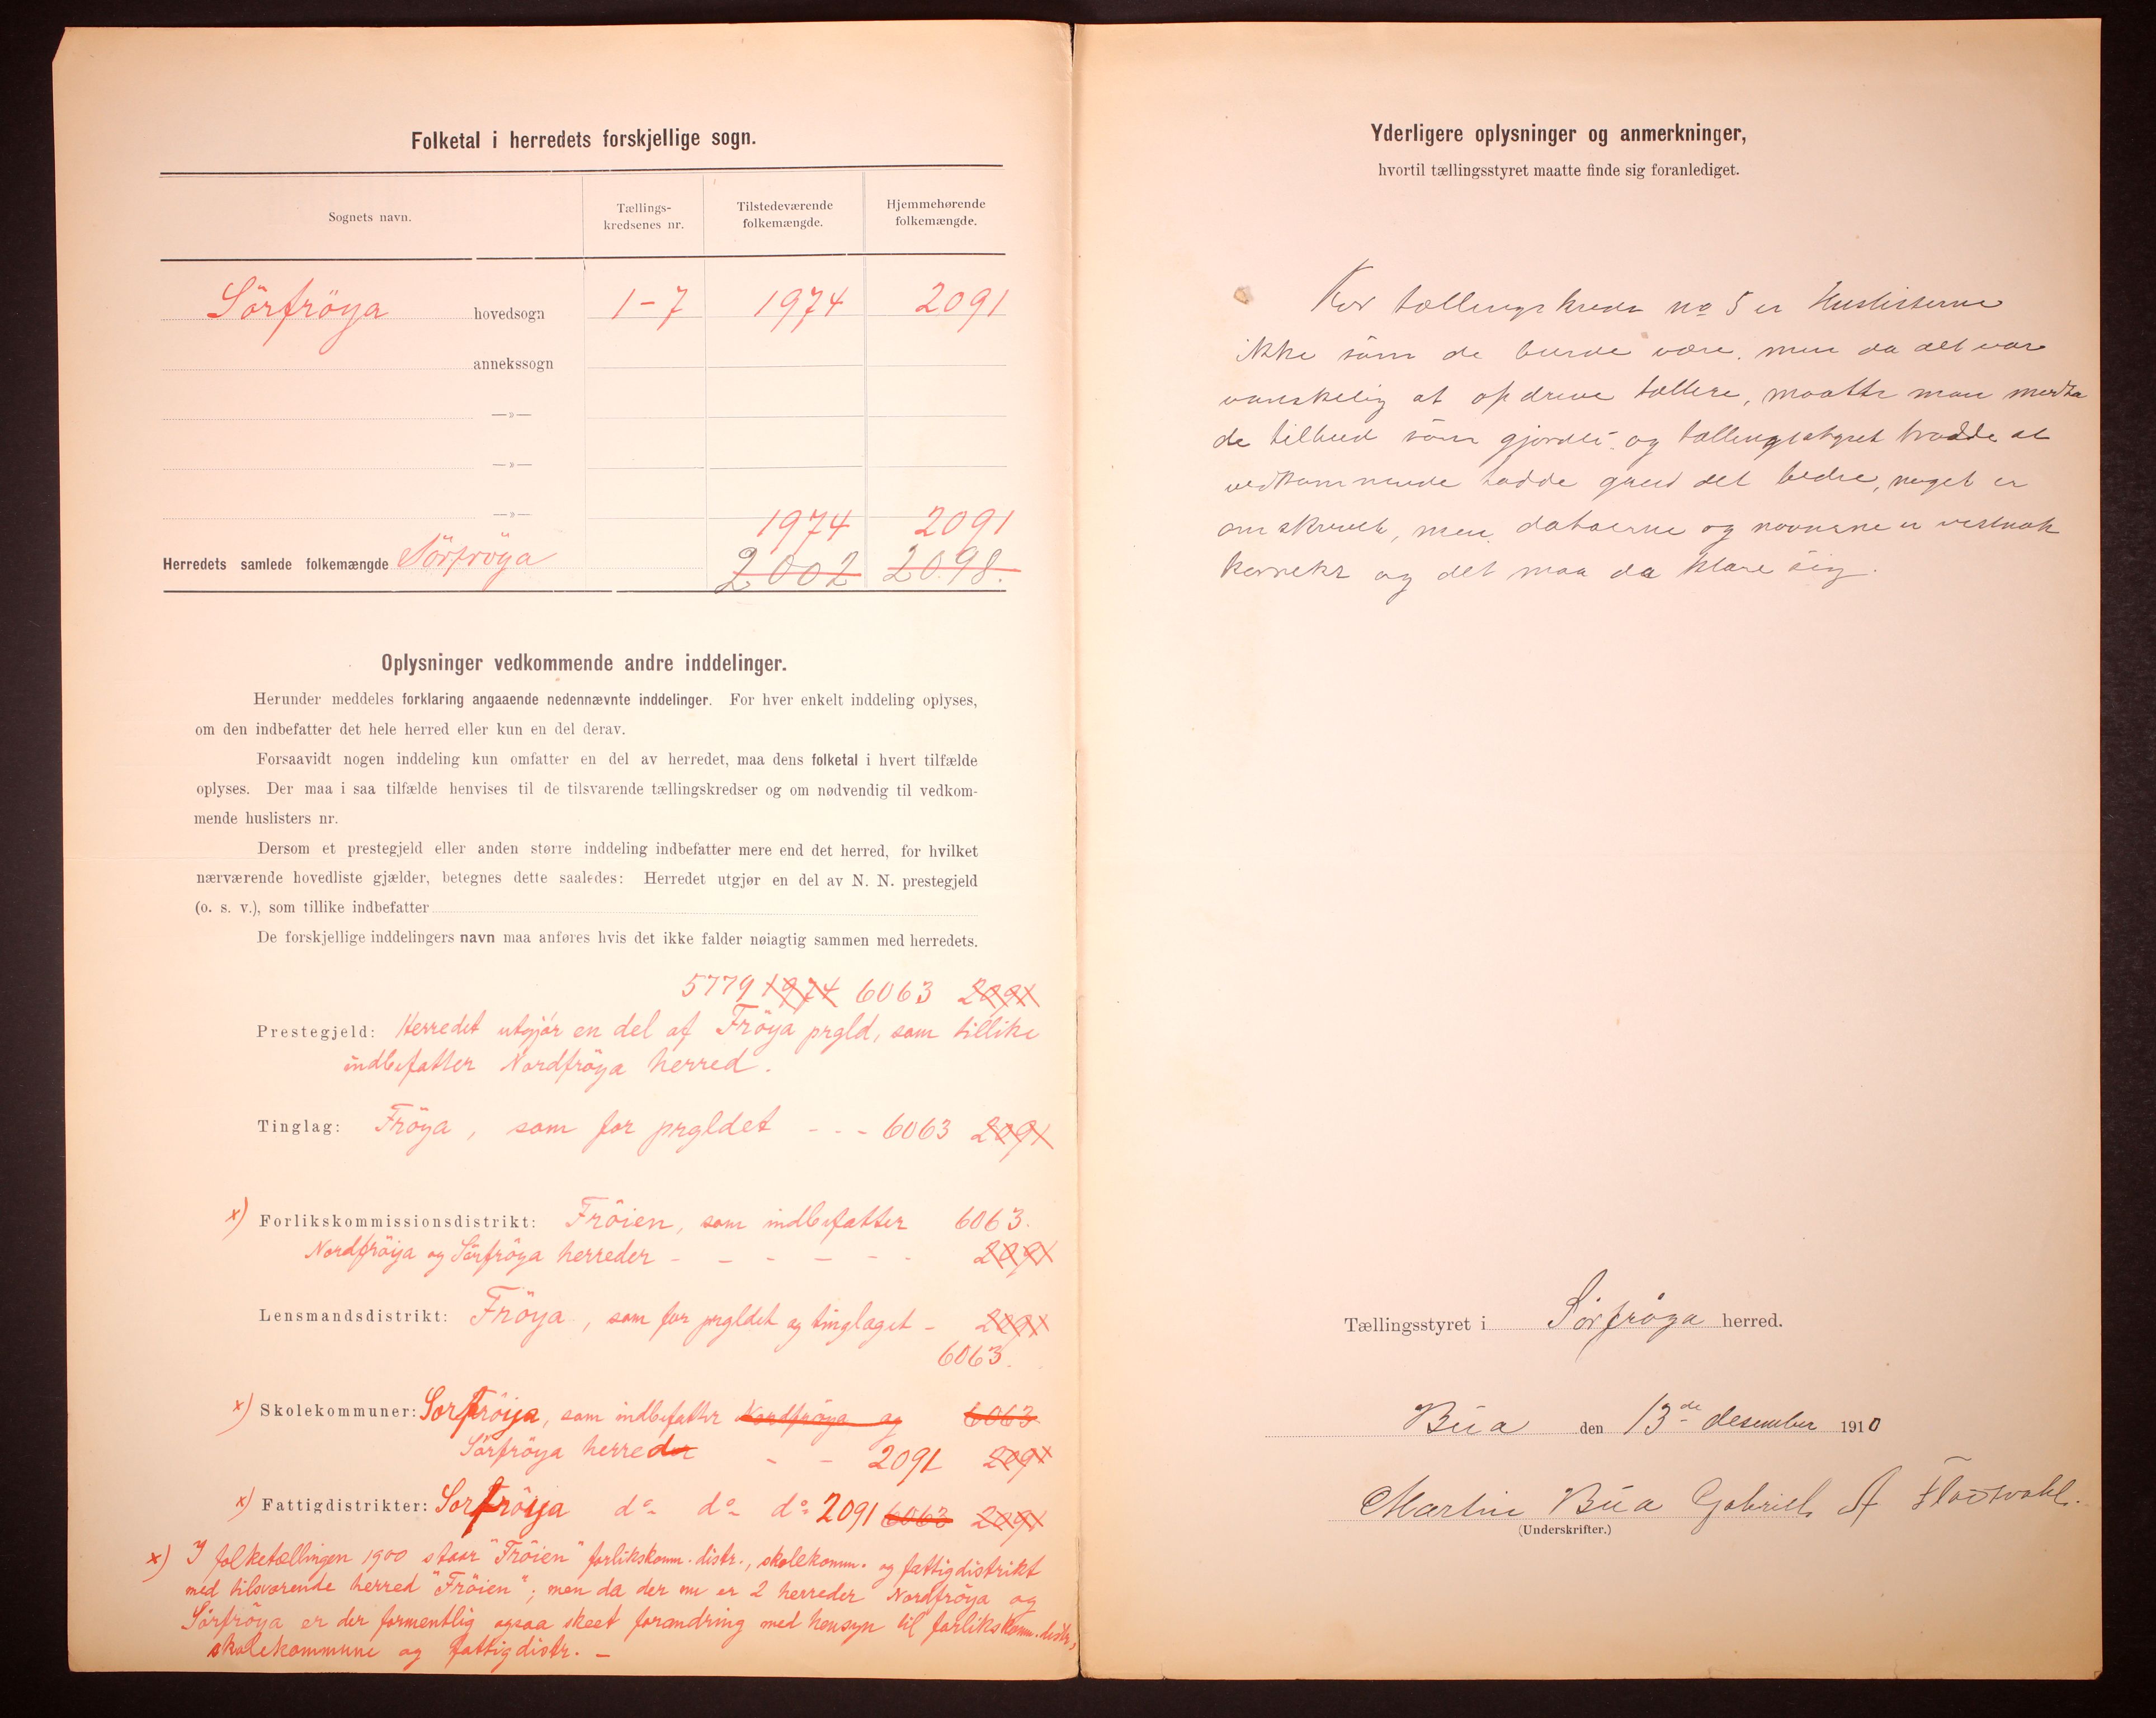 Folketal i herredets forskjellige sogn.
Sognets navn.
Tællings-
kredsenes nr.
Tilstedeværende
folkemængde.
Hjemmehørende
folkemængde.
Sörfröya hovedsogn 1-7 1974 2091
annekssogn
—»—
—»—
—»—
1974 2091
Herredets samlede folkemængde Sörfröya 2002 2098.
Oplysninger vedkommende andre inddelinger.
Herunder meddeles forklaring angaaende nedennævnte inddelinger. For hver enkelt inddeling oplyses,
om den indbefatter det hele herred eller kun en del derav.
Forsaavidt nogen inddeling kun omfatter en del av herredet, maa dens folketal i hvert tilfælde
oplyses. Der maa i saa tilfælde henvises til de tilsvarende tællingskredser og om nødvendig til vedkom-
mende huslisters nr.
Dersom et prestegjeld eller anden større inddeling indbefatter mere end det herred, for hvilket
nærværende hovedliste gjælder, betegnes dette saaledes: Herredet utgjør en del av N. N. prestegjeld
(o. s. v.), som tillike indbefatter
De forskjellige inddelingers navn maa anføres hvis det ikke falder nøiagtig sammen med herredets.
5779 1974 6063 2091
Prestegjeld: Herredet utgjör en del af Fröya prgld, som tillike
indbefatter Nordfröya herred.
Tinglag: Fröya, som for prgldet - - - 6063 2091
x) Forlikskommissionsdistrikt: Fröien, som indbefatter 6063.
Nordfröya og Sörfröya herreder - - - - - - 2091
Lensmandsdistrikt: Fröya, som for prgldet og tinglaget - 2091
6063.
x) Skolekommuner: Sørfröya, som indbefatter Nordfröya og 6063
Sörfröya herreder - - 2091 2091
x) Fattigdistrikter: Sørfröya do do do 2091 6063 2091
x) I folketællingen 1900 staar "Fröien" forlikskomm. distr., skolekomm. og fattigdistrikt
med tilsvarende herred "Fröien"; men da der nu er 2 herreder Nordfröya og
Sörfröya er der formentlig ogsaa skeet forandring med hensyn til forlikskomm. distr.,
skolekommune og fattigdistr. —
Yderligere oplysninger og anmerkninger,
hvortil tællingsstyret maatte finde sig foranlediget.
For tællingskreds no 5 er Huslisterne
ikke som de burde være, men da det var
vanskelig at opdrive tællere, maatte man medta
de tilbud som gjordes og tællingsstyret trodde at
vedkommende hadde gjort det bedre, noget er
omskrevet, men datoerne og navnene er vistnok
korrekt og det maa da klare sig.
Tællingsstyret i Sörfröya herred.
Búa den 13de desember 1910
Martin Búa Gabriel A
(Underskrifter.)